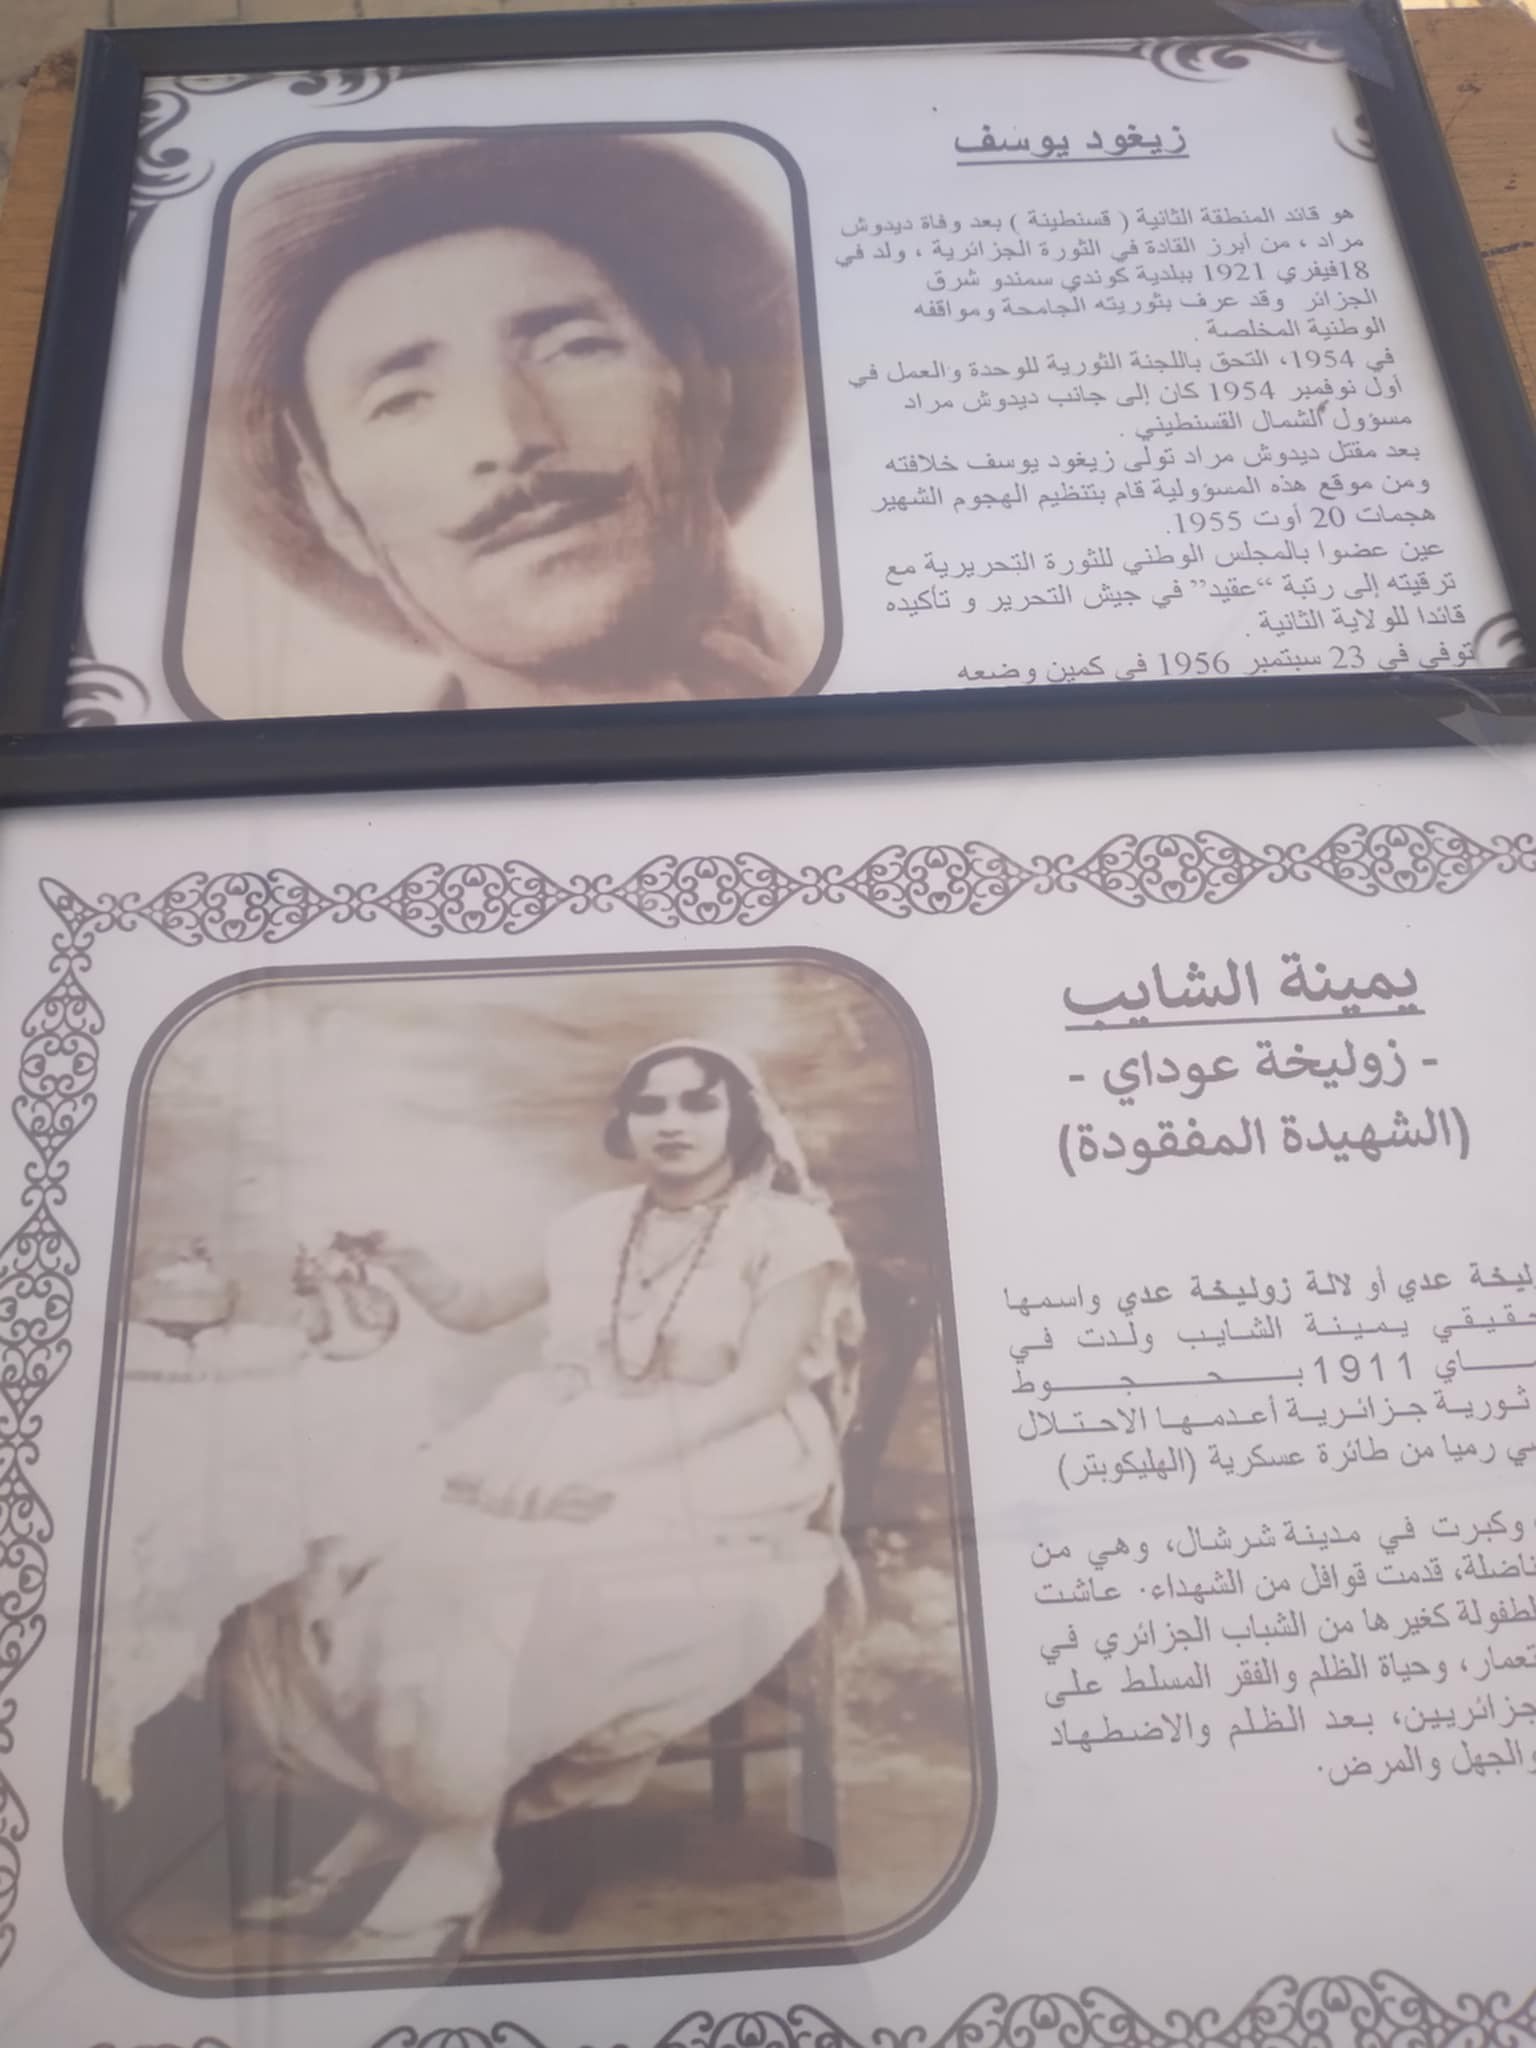 زيغود يوسف
هو قائد المنطقة الثانية ( قسنطينة ) بعد وفاة ديدوش
مراد ، من أبرز القادة في الثورة الجزائرية ، ولد في
18فيفري 1921 ببلدية كوندي سمندو شرق
الجزائر وقد عرف بثوريته الجامحة ومواقفه
الوطنية المخلصة .
في 1954، التحق باللجنة الثورية للوحدة والعمل في
أول نوفمبر 1954 كان إلى جانب ديدوش مراد
مسؤول الشمال القسنطيني .
بعد مقتل ديدوش مراد تولى زيغود يوسف خلافته
ومن موقع هذه المسؤولية قام بتنظيم الهجوم الشهير
هجمات 20 أوت 1955.
عين عضوا بالمجلس الوطني للثورة التحريرية مع
ترقيته إلى رتبة “عقيد” في جيش التحرير و تأكيده
قائدا للولاية الثانية .
توفي في 23 سبتمبر 1956 في كمين وضعه
يمينة الشايب
- زوليخة عوداي -
(الشهيدة المفقودة)
ليخة عدي أو لالة زوليخة عدي واسمها
حقيقي يمينة الشايب ولدت في
ـاي 1911 بـحـجـوط
ثورية جزائرية أعدمها الاحتلال
سي رميا من طائرة عسكرية (الهليكوبتر)
وكبرت في مدينة شرشال، وهي من
ناضلة، قدمت قوافل من الشهداء. عاشت
لطفولة كغيرها من الشباب الجزائري في
تعمار، وحياة الظلم والفقر المسلط على
جزائريين، بعد الظلم والاضطهاد
والجهل والمرض.